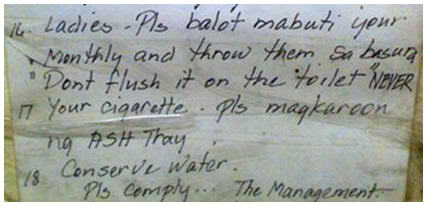 16. Ladies - Pls balot mabuti your
Monthly and throw them sa basura
"Dont flush it on the toilet" NEVER
17 Your cigarette. pls magkaroon
ng ASH Tray.
18 Conserve Water.
Pls Comply... The Management